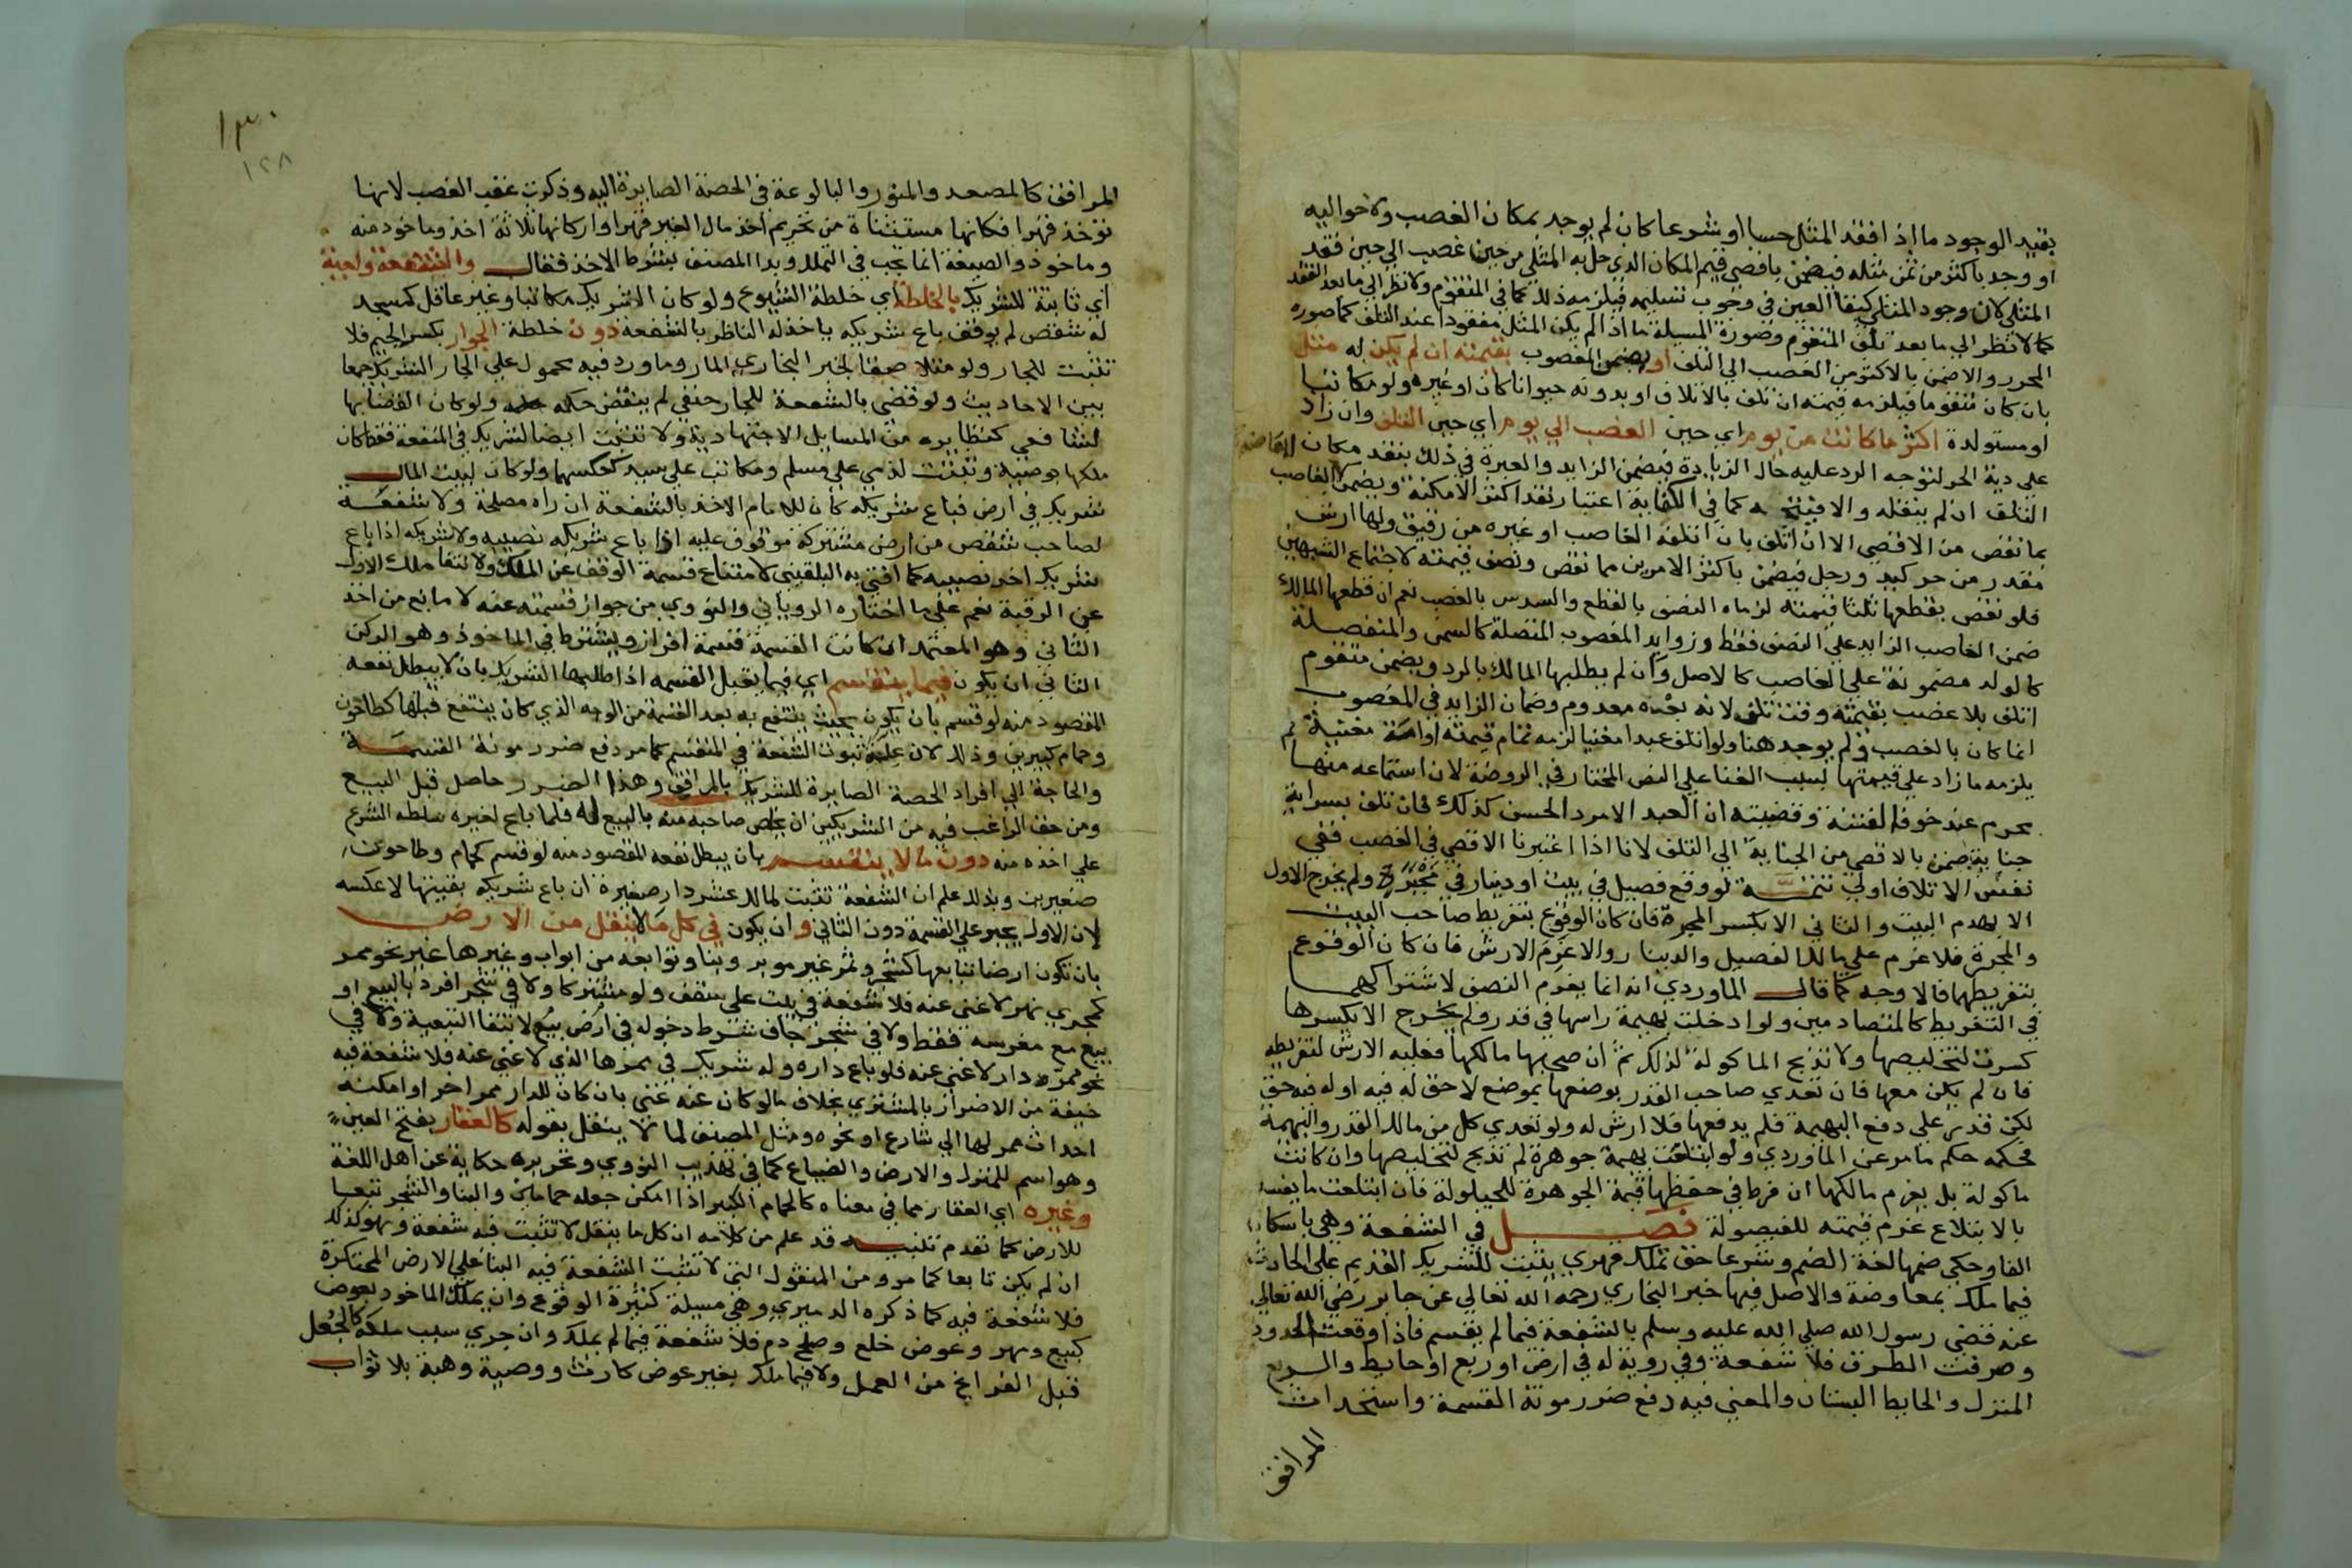 بقيد الوجود ما اذا فقد المثل حسا او شرعا كان لم يوجد بمكان الغصب ولا حواليه
او وجد باكثر من ثمن مثله فيضمن باقصى قيم المكان الذي حل به المثلي من حين غصب الي حين فقد
المثلي لان وجود المثلي كبقا العين في وجوب تسليمه فيلزمه ذلك كما في المتقوم ولا نظر الي ما بعد الفقد
كما لا نظر الي ما بعد تلف المتقوم وصورة المسيلة ما اذا لم يكن المثل مفقودا عند التلف كما صوره
المحرر والا ضمن بالاكثر من الغصب الي التلف او يضمن المغصوب بقيمته ان لم يكن له مثل
بان كان متقوما فيلزمه قيمته ان تلف بالاتلاف او بدونه حيوانا كان او غيره ولو مكاتبا
او مستولدة اكثر ما كانت من يوم اي حين الغصب الي يوم اي حين التلف وان زاد
علي دية الحر لتوجه الرد عليه حال الزيادة فيضمن الزايد والعبرة في ذلك بنقد مكان
التلف ان لم ينقله والا فيتجه كما في الكفاية اعتبار نقد اكثر الامكنة ويضمن الغاصب
بما نقص من الاقصي الا ان اتلف بان اتلفه الغاصب او غيره من رقيق ولها ارش
مقدر من حر كيد ورجل فيضمن باكثر الامرين مما نقص ونصف قيمته لاجتماع الشبهين
فلو نقص بقطعها ثلثا قيمته لزماه النصف بالقطع والسدس بالغصب نعم ان قطعها المالك
ضمن الغاصب الزايد علي النصف فقط وزوايد المغصوب المتصلة كالسمن والمنفصلة
كالولد مضمونة علي الغاصب كالاصل وان لم يطلبها المالك بالرد ويضمن متقوم
اتلف بلا غصب بقيمته وقت تلف لانه بعده معدوم وضمان الزايد في المغصوب
انما كان بالغصب ولم يوجد هنا ولو اتلف عبدا مغنيا لزمه تمام قيمته او امة مغنية لم
يلزمه ما زاد علي قيمتها بسبب الغنا علي النص المختار في الروضة لان استماعه منها
محرم عند خوف الفتنة وقضيته ان العبد الامرد الحسن كذلك فان تلف بسراية
جناية ضمن بالاقصي من الجناية الي التلف لانا اذا اعتبرنا الاقصي في الغصب ففي
نفس الاتلاف اولي تتمة لو وقع فصيل في بيت او دينار في محبرة ولم يخرج الاول
الا بهدم البيت والثاني الا بكسر المحبرة فان كان الوقوع بتفريط صاحب البيت
والمحبرة فلا غرم علي مالك الفصيل والدينار والا غرم الارش فان كان الوقوع
بتفريطهما فالاوجه كما قال الماوردي انه انما يغرم النصف لاشتراكهما
في التفريط كالمتصادمين ولو ادخلت بهيمة راسها في قدر ولم يخرج الا بكسرها
كسرت لتخليصها ولا تذبح الماكولة لذلك ثم ان صحبها مالكها فعليه الارش لتفريطه
فان لم يكن معها فان تعدي صاحب القدر بوضعها بموضع لا حق له فيه او له فيه حق
لكن قدر علي دفع البهيمة فلم يدفعها فلا ارش له ولو تعدي كل من مالك القدر والبهيمة
فحكمه حكم ما مر عن الماوردي ولو ابتلعت بهيمة جوهرة لم تذبح لتخليصها وان كانت
ماكولة بل يغرم مالكها ان فرط في حفظها قيمة الجوهرة للحيلولة فان ابتلعت ما يفسد
بالابتلاع غرم قيمته للفيصولة فصل في الشفعة وهي باسكان
الفا وحكي ضمها لغة الضم وشرعا حق تملك قهري يثبت للشريك القديم علي الحادث
فيما ملك بمعاوضة والاصل فيها خبر البخاري رحمه الله تعالي عن جابر رضي الله تعالي
عنه قضي رسول الله صلي الله عليه وسلم بالشفعة فيما لم يقسم فاذا وقعت الحدود
وصرفت الطرق فلا شفعة وفي روية له في ارض او ربع او حايط والربع
المنزل والحايط البستان والمعني فيه دفع ضرر مونة القسمة واستحداث
المرافق
١٣٠
١٢٨
المرافق كالمصعد والمنور والبالوعة في الحصة الصايرة اليه وذكرت عقب الغصب لانها
توخذ قهرا فكانها مستثناة من تحريم اخذ مال الغير قهرا واركانها ثلاثة اخذ وماخوذ منه
وماخوذ والصيغة انما تجب في التملك وبدا المصنف بشرط الاخذ فقال والشفعة واجبة
اي ثابتة للشريك بالخلطة اي خلطة الشيوع ولو كان الشريك مكاتبا وغير عاقل كمسجد
له شقص لم يوقف باع شريكه ياخذ له الناظر بالشفعة دون خلطة الجوار بكسر الجيم فلا
تثبت للجار ولو ملاصقا لخبر البخاري المار وما ورد فيه محمول علي الجار الشريك جمعا
بين الاحاديث ولو قضي بالشفعة للجار حنفي لم ينقض حكمه ولو كان القضا بها
لشافعي كنظايره من المسايل الاجتهادية ولا تثبت ايضا لشريك في المنفعة فقط كان
ملكها بوصية وتثبت لذمي علي مسلم ومكاتب علي سيد كعكسهما ولو كان لبيت المال
شريك في ارض فباع شريكه كان للامام الاخذ بالشفعة ان راه مصلحة ولا شفعة
لصاحب شقص من ارض مشتركة موقوف عليه اذا باع شريكه نصيبه ولا لشريكه اذا باع
شريك اخر نصيبه كما افتي به البلقيني لامتناع قسمة الوقف عن الملك ولانتفا ملك الاول
عن الرقبة نعم علي ما اختاره الروياني والنووي من جواز قسمته عنه لا مانع من اخذ
الثاني وهو المعتمد ان كانت القسمة قسمة افراز ويشترط في الماخوذ وهو الركن
الثاني ان يكون فيما ينقسم اي فيما يقبل القسمة اذا طلبها الشريك بان لا يبطل نفعه
المقصود منه لو قسم بان يكون بحيث ينتفع به بعد القسمة من الوجه الذي كان ينتفع قبلها كطاحون
وحمام كبيرين وذلك لان علة ثبوت الشفعة في المنقسم كما مر دفع ضرر مونة القسمة
والحاجة الي افراد الحصة الصايرة للشريك بالمرافق وهذا الضرر حاصل قبل البيع
ومن حق الراغب فيه من الشريكين ان يخلص صاحبه منه بالبيع له فلما باع لغيره سلطه الشرع
علي اخذه منه دون ما لا ينقسم بان يبطل نفعه المقصود منه لو قسم كحمام وطاحون
صغيرين وبذلك علم ان الشفعة تثبت لمالك عشر دار صغيرة ان باع شريكه بقيتها لا عكسه
لان الاول يجبر علي القسمة دون الثاني وان يكون في كل ما لا ينقل من الارض
بان تكون ارضا بتابعها كشجر وثمر غير موبر وبنا وتوابعه من ابواب وغيرها غير نحو ممر
كمجري نهر لا غني عنه فلا شفعة في بيت علي سقف ولو مشتركا ولا في شجر افرد بالبيع او
بيع مع مغرسه فقط ولا في شجر جاف شرط دخوله في ارض بيع لانتفا التبعية ولا في
نحو ممر دار لا غني عنه فلو باع داره وله شريك في ممرها الذي لا غني عنه فلا شفعة فيه
خيفة من الاضرار بالمشتري بخلاف ما لو كان عنه غني بان كان للدار ممر اخر او امكنه
احداث ممر لها الي شارع او نحوه ومثل المصنف لما لا ينقل بقوله كالعقار بفتح العين
وهو اسم للمنزل والارض والضياع كما في تهذيب النووي وتحريره حكاية عن اهل اللغة
وغيره اي العقار مما في معناه كالحمام الكبير اذا امكن جعله حمامين والبنا والشجر تبعا
للارض كما تقدم تنبيه قد علم من كلامه ان كل ما ينقل لا تثبت فيه شفعة وهو كذلك
ان لم يكن تابعا كما مر ومن المنقول التي لا تثبت الشفعة فيه البنا علي الارض المحتكرة
فلا شفعة فيه كما ذكره الدميري وهي مسيلة كثيرة الوقوع وان يملك الماخوذ بعوض
كبيع ومهر وعوض خلع وصلح دم فلا شفعة فيما لم يملك وان جري سبب ملكه كالجعل
قبل الفراغ من العمل ولا فيما ملك بغير عوض كارث ووصية وهبة بلا ثواب